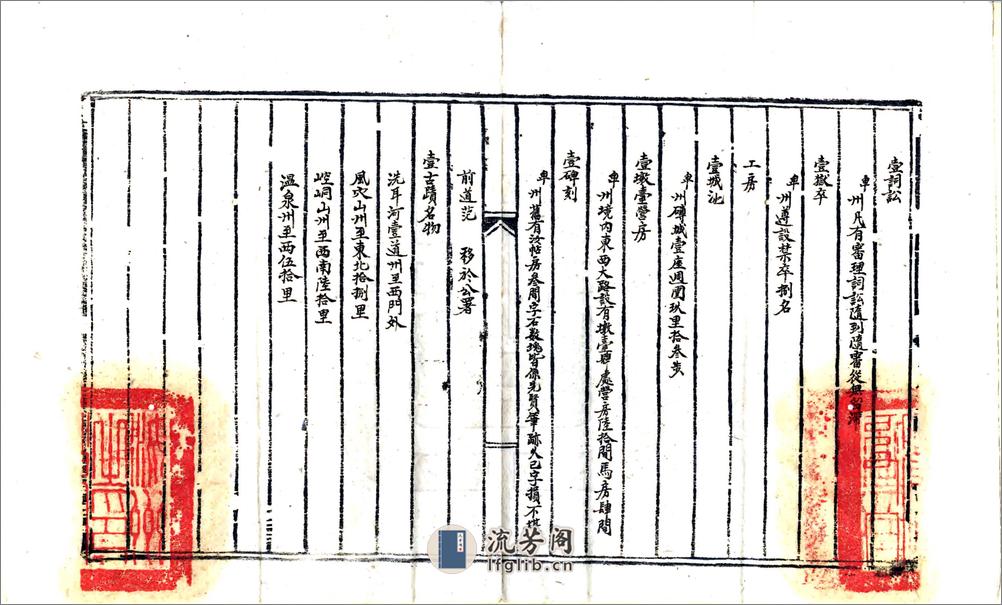 壹詞訟
卑州凡有審理詞訟隨到隨審從無
壹獄卒
卑州遵設禁卒捌名
工房
壹城池
卑州磚城壹座週圍玖里拾叁步
壹墩臺營房
卑州境内東西大路設有墩臺 處營房陸拾間馬房肆間
壹碑刻
卑州舊有汝帖房叁間字石数塊皆係先賢筆跡久已字損不堪
前道范 移於公署
壹古蹟名物
洗耳河壹道州至西門外
風穴山州至東北拾捌里
崆峒山州至西南陸拾里
溫泉州至西伍拾里
流芳阁
lfglib.cn